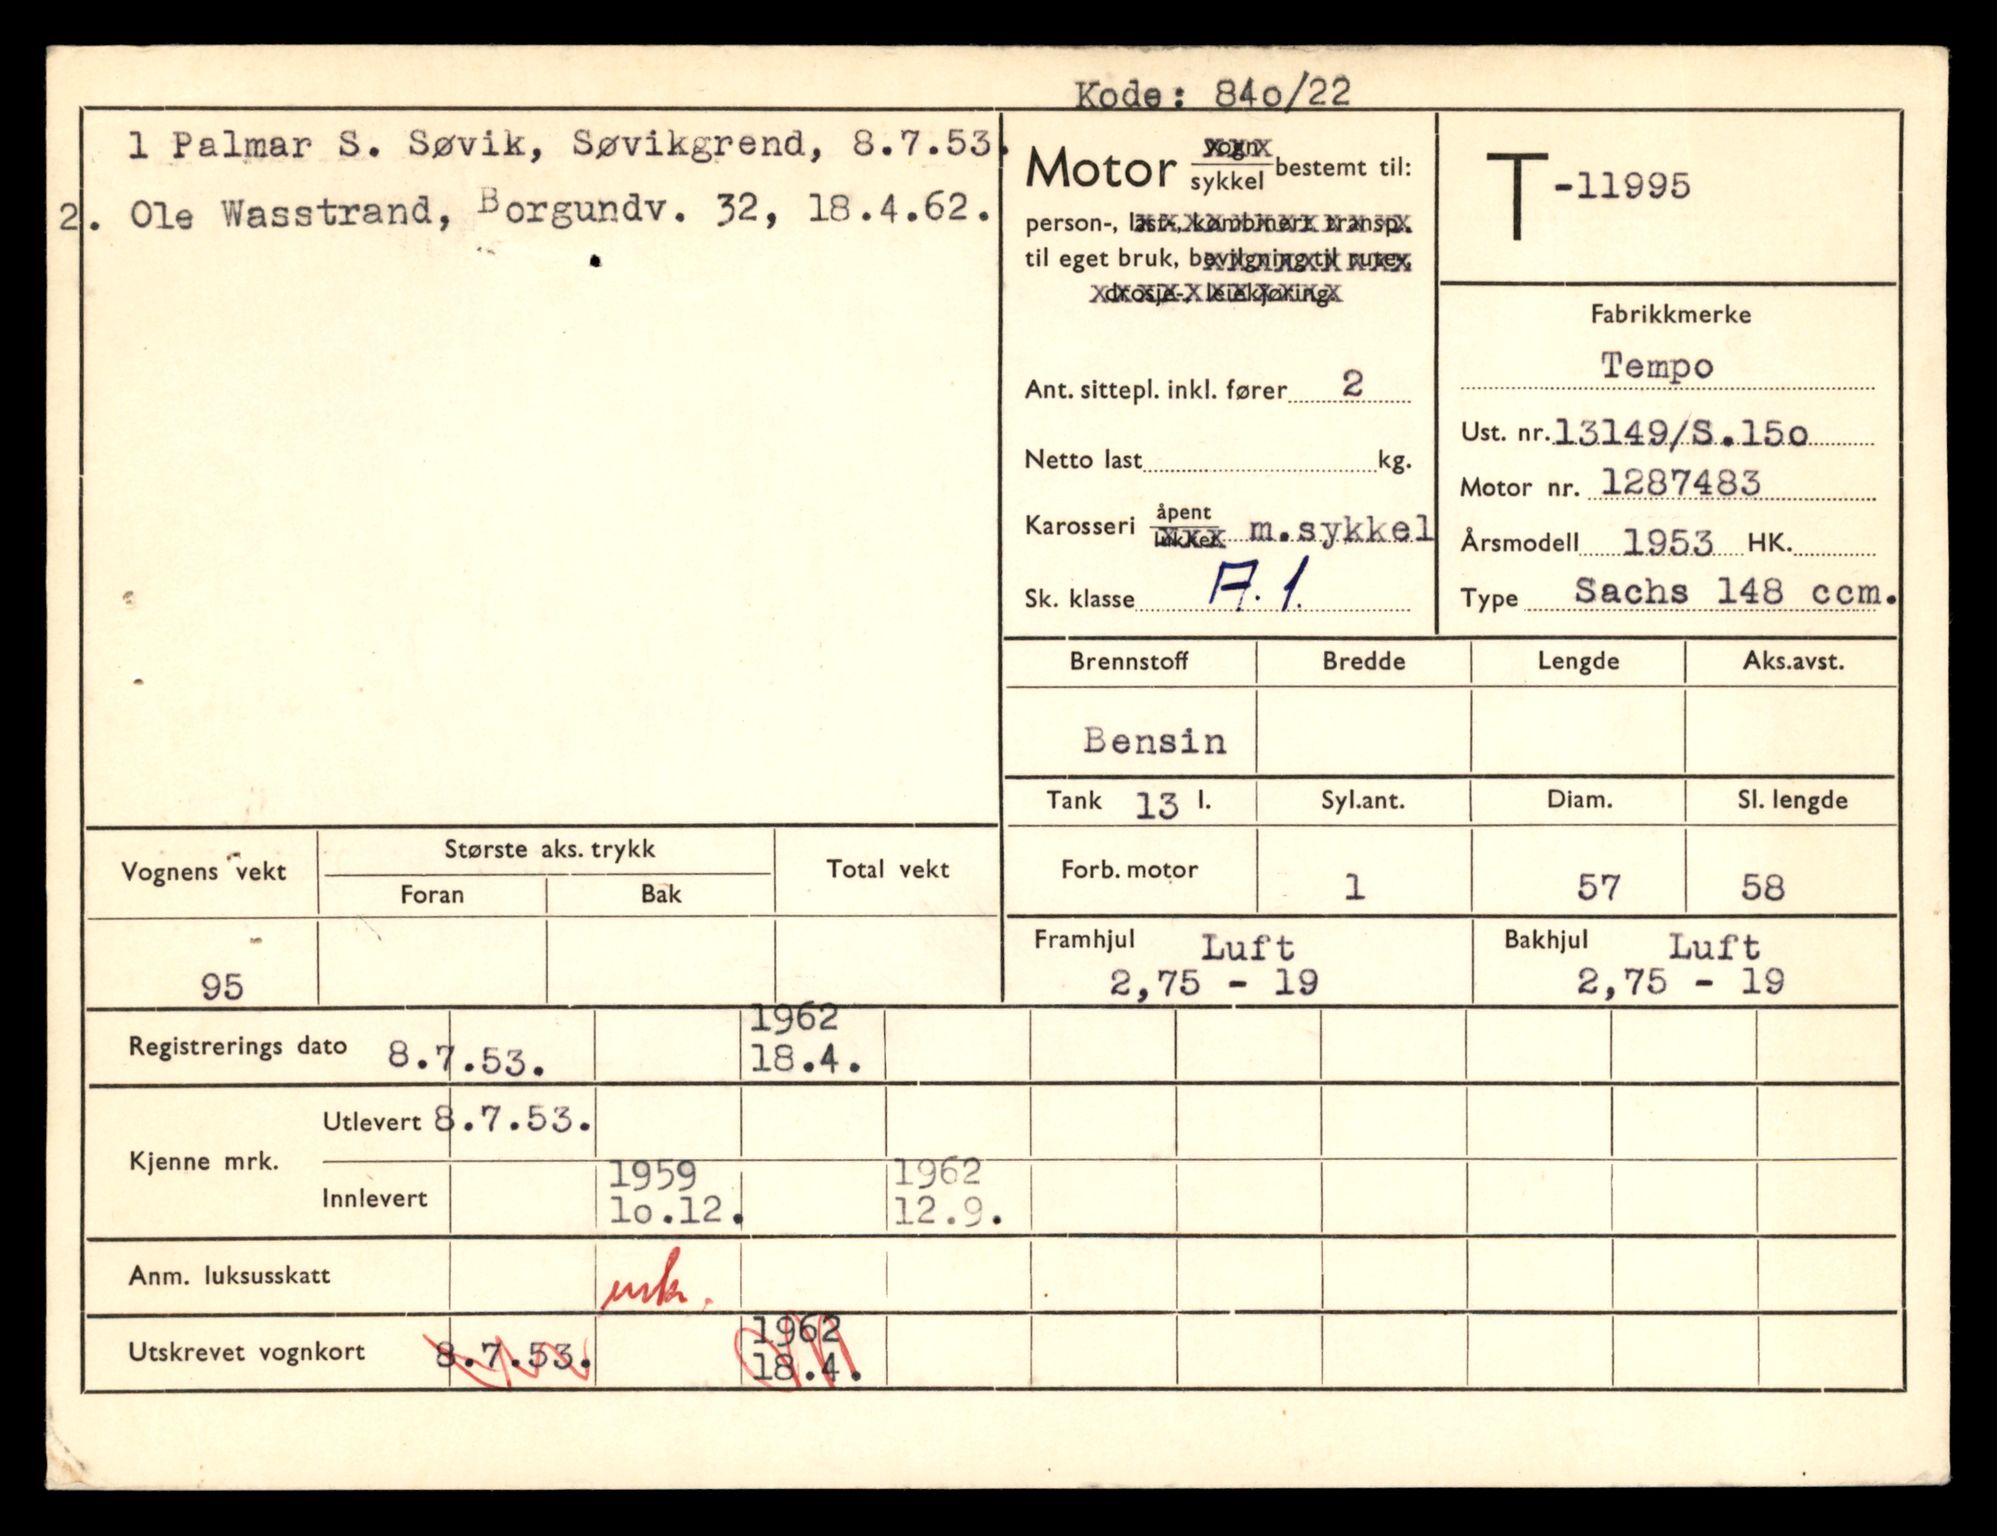 Kode: 84o/22
1 Palmar S. Søvik, Søvikgrend, 8.7.53.
2. Ole Wasstrand, Borgundv. 32, 18.4.62.
Motor vogn/sykkel bestemt til:
person-, last-, kombinert transp.
til eget bruk, bevilgning til rute-,
drosje-, leiekjøring.
Ant. sittepl. inkl. fører 2
Netto last kg.
Karosseri åpent/lukket m.sykkel
Sk. klasse A.1.
T-11995
Fabrikkmerke
Tempo
Ust. nr. 13149/S.15o
Motor nr. 1287483
Årsmodell 1953 HK.
Type Sachs 148 ccm.
Brennstoff Bredde Lengde Aks.avst.
Bensin
Tank 13 l. Syl.ant. Diam. Sl. lengde
Forb. motor 1 57 58
Framhjul Luft Bakhjul Luft
2,75 - 19 2,75 - 19
Vognens vekt Største aks. trykk Total vekt
Foran Bak
95
Registrerings dato 8.7.53. 1962 18.4.
Kjenne mrk.
Utlevert 8.7.53.
Innlevert 1959 1o.12. 1962 12.9.
Anm. luksusskatt
Utskrevet vognkort 8.7.53. 1962 18.4.